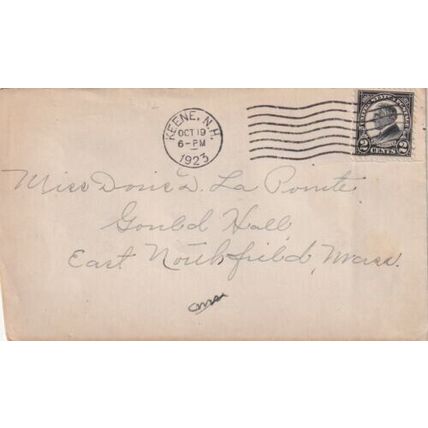 KEENE, N.H.
OCT 19
6-PM
1923
UNITED STATES POSTAGE
2 CENTS 2
Miss Doris D. La Pointe
Gould Hall,
East Northfield, Mass.